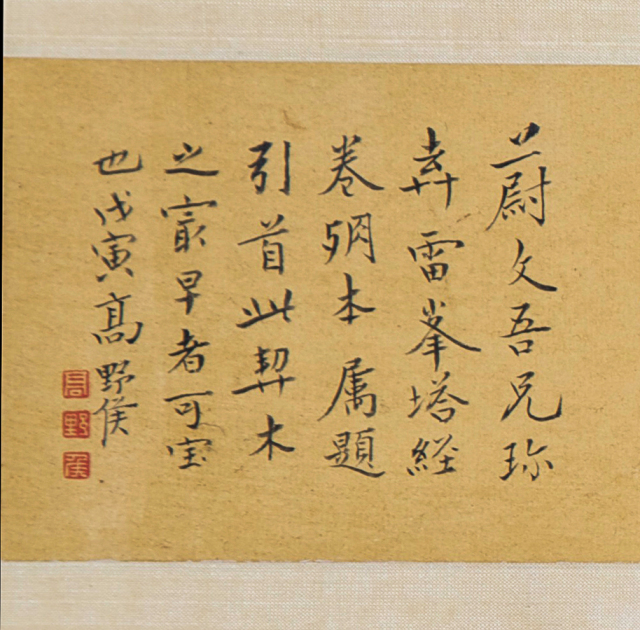 蔚文吾兄珎
弆雷峯塔経
卷殘本属題
引首此栔本
之㝡早者可宝
也戊寅高野侯
高
野
侯